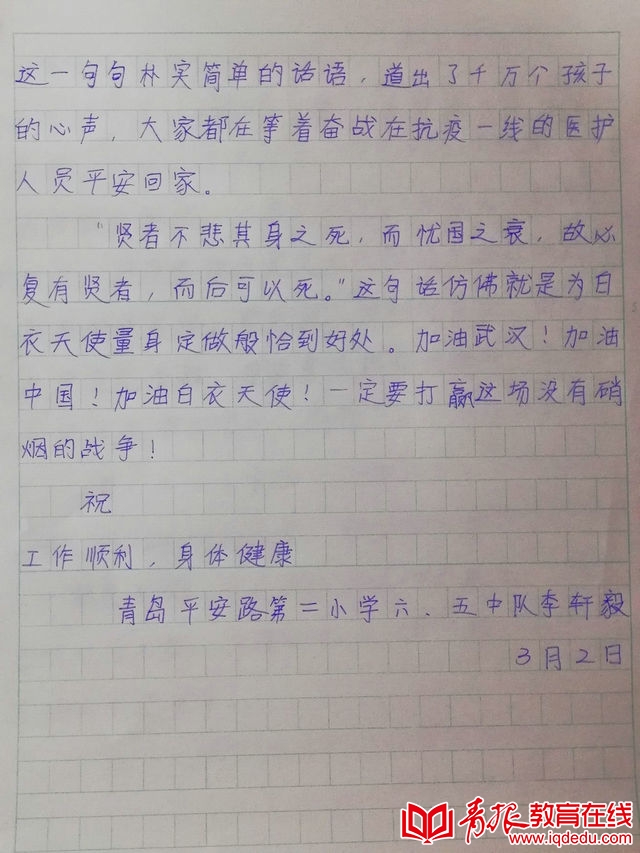 这一句句朴实简单的话语，道出了千万个孩子
的心声，大家都在等着奋战在抗疫一线的医护
人员平安回家。
“贤者不悲其身之死，而忧国之衰，故必
复有贤者，而后可以死。”这句话仿佛就是为白
衣天使量身定做般恰到好处。加油武汉！加油
中国！加油白衣天使！一定要打赢这场没有硝
烟的战争！
祝
工作顺利，身体健康
青岛平安路第二小学六、五中队李轩毅
3月2日
青报教育在线
www.iqdedu.com